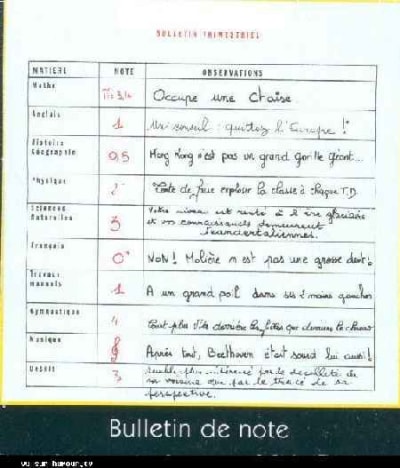 BULLETIN TRIMESTRIEL
MATIERE NOTE OBSERVATIONS
Maths π=3,14 Occupe une chaise.
Anglais 1 Un conseil : quittez l'Europe !
Histoire
Géographie 0,5 Hong Kong n'est pas un grand gorille géant...
Physique Tente de faire exploser la classe à chaque T.D.
Sciences
Naturelles 3 Votre niveau est resté à l'ère glaciaire
et vos connaissances demeurent
neandertaliennes.
Français 0 NON! Molière n'est pas une grosse dent!
Travaux
manuels 1 A un grand poil dans ses 2 mains gauches
Gymnastique 4 plus derrière les que devant le
Musique Après tout, Beethoven était sourd lui aussi!
Dessin 3 plus intéressé par le décolleté de
sa voisine que par le tracé de sa
perspective.
Bulletin de note
vu sur humour.tv